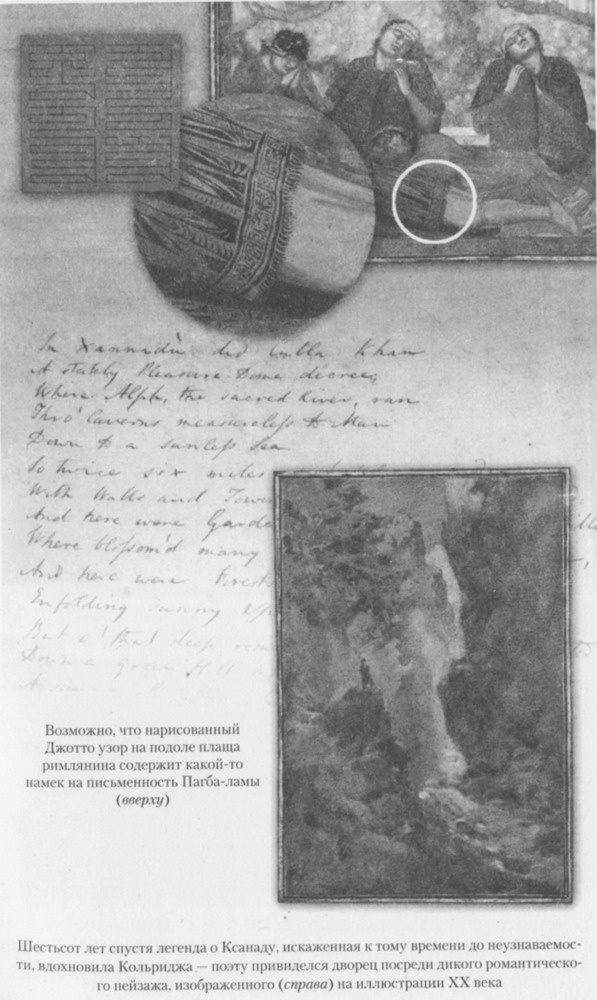 In Xannadù did Cubla Khan
A stately Pleasure-Dome decree;
Where Alph, the sacred River, ran
Thro' Caverns measureless to Man
Down to a sunless Sea.
So twice six miles
With Walls and Towers
And here were Gardens
Where blossom'd many
And here were Forests
Enfolding sunny
But o! that deep
Down a Green Hill
Возможно, что нарисованный
Джотто узор на подоле плаща
римлянина содержит какой-то
намек на письменность Пагба-ламы
(вверху)
Шестьсот лет спустя легенда о Ксанаду, искаженная к тому времени до неузнаваемос-
ти, вдохновила Кольриджа — поэту привиделся дворец посреди дикого романтическо-
го пейзажа, изображенного (справа) на иллюстрации XX века